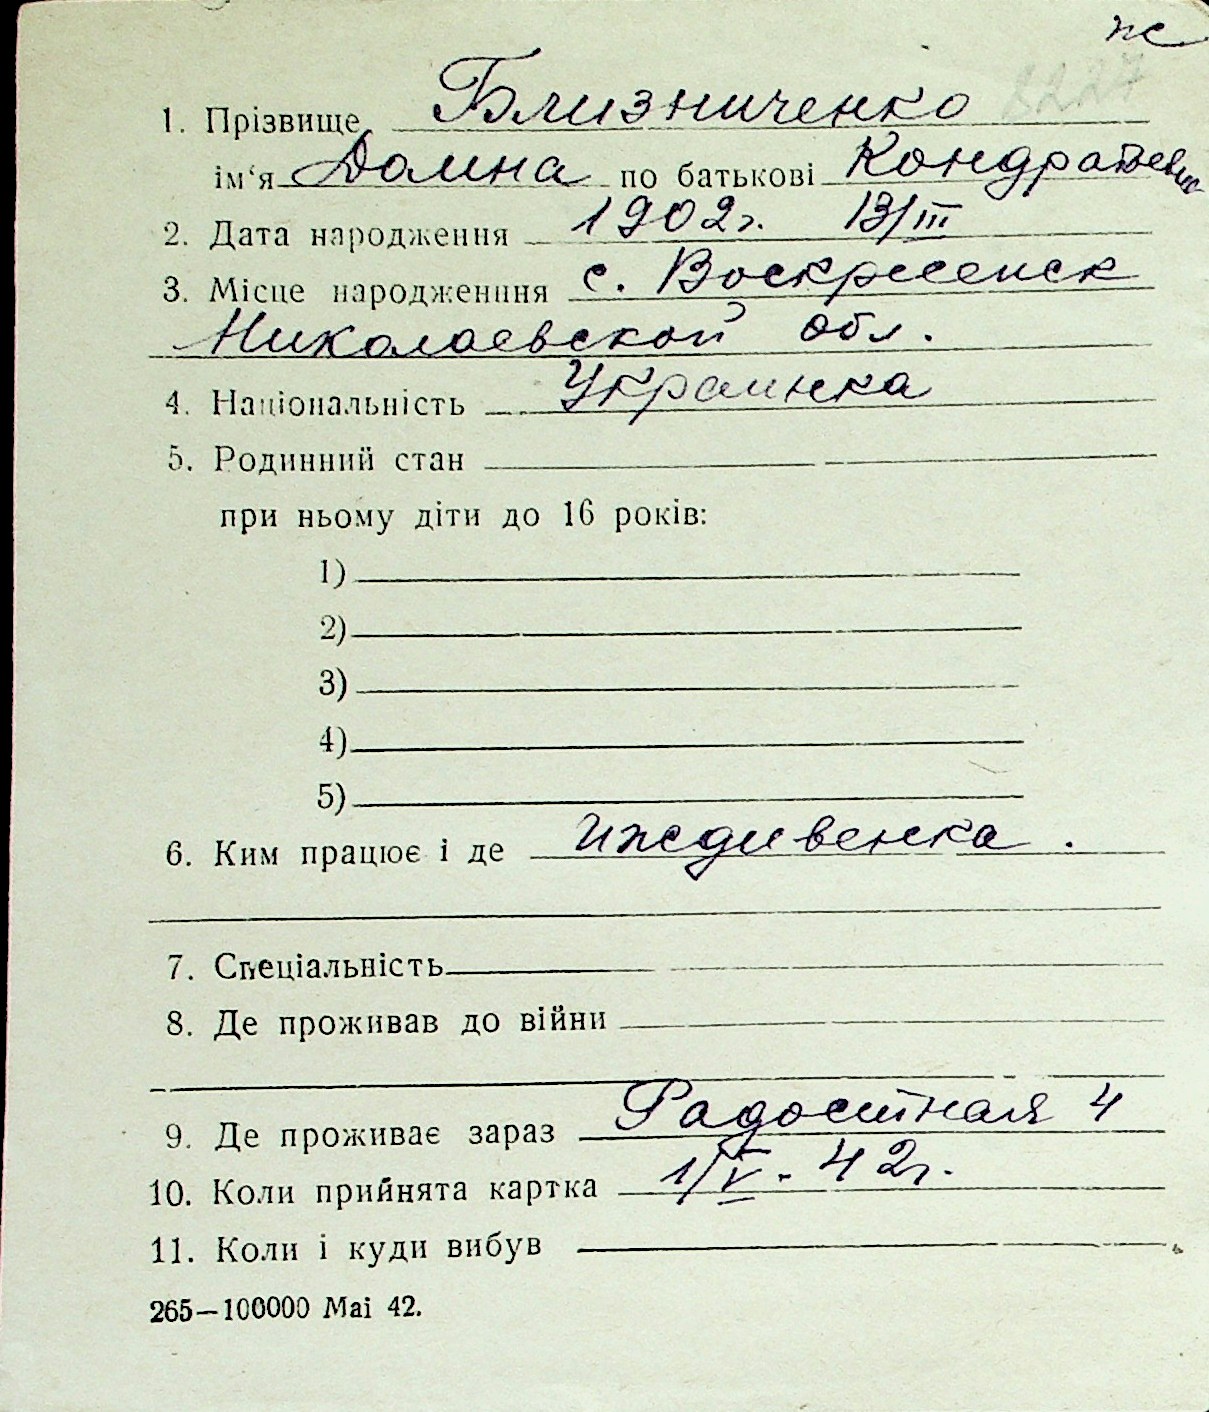 ж
8227
1. Прізвище Близниченко
ім'я Домна по батькові Кондратьевна
2. Дата народження 1902 г. 13/III
3. Місце народженння с. Воскресенск
Николаевской обл.
4. Національність Украинка
5. Родинний стан
при ньому діти до 16 років:
1)
2)
3)
4)
5)
6. Ким працює і де иждивенка.
7. Спеціальність
8. Де проживав до війни
9. Де проживає зараз Радостная 4
10. Коли прийнята картка 1/V - 42 г.
11. Коли і куди вибув
265—100000 Маі 42.